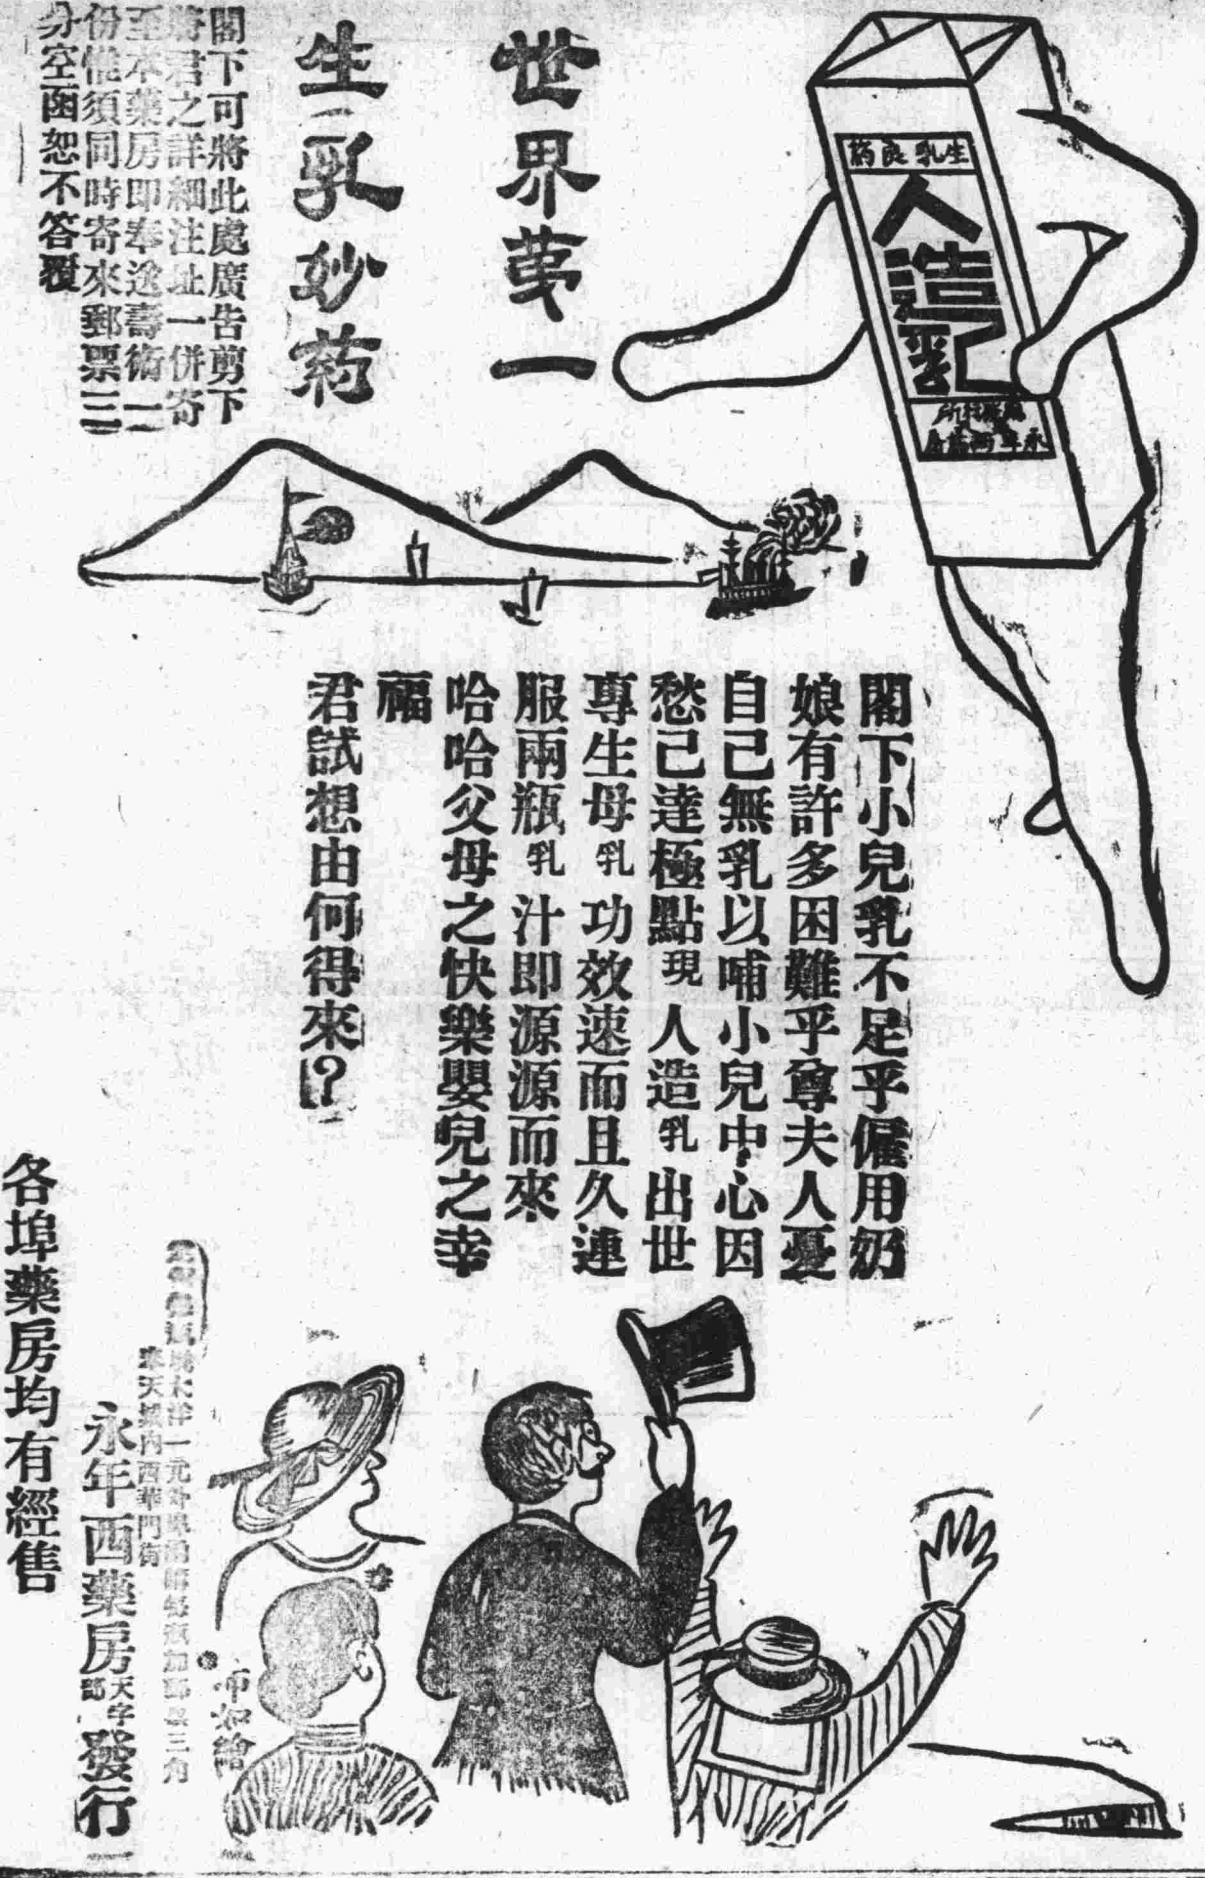 生乳良葯
人造乳
世界苐一
生乳妙葯
閣下可將此處廣告剪下
將君之詳細注址一併寄
至本藥房即奉送壽術一
份惟須同時寄來郵票三
分空函恕不答覆
閣下小兒乳不足乎僱用奶
娘有許多困難乎尊夫人憂
自己無乳以哺小兒中心因
愁己達極點現人造乳出世
專生母乳功效速而且久連
服兩瓶乳汁即源源而來
哈哈父母之快樂嬰兒之幸
福
君試想由何得來?
大洋一元外埠函
三角
奉天城內西華門街
永年西藥房天字部發行
各埠藥房均有經售